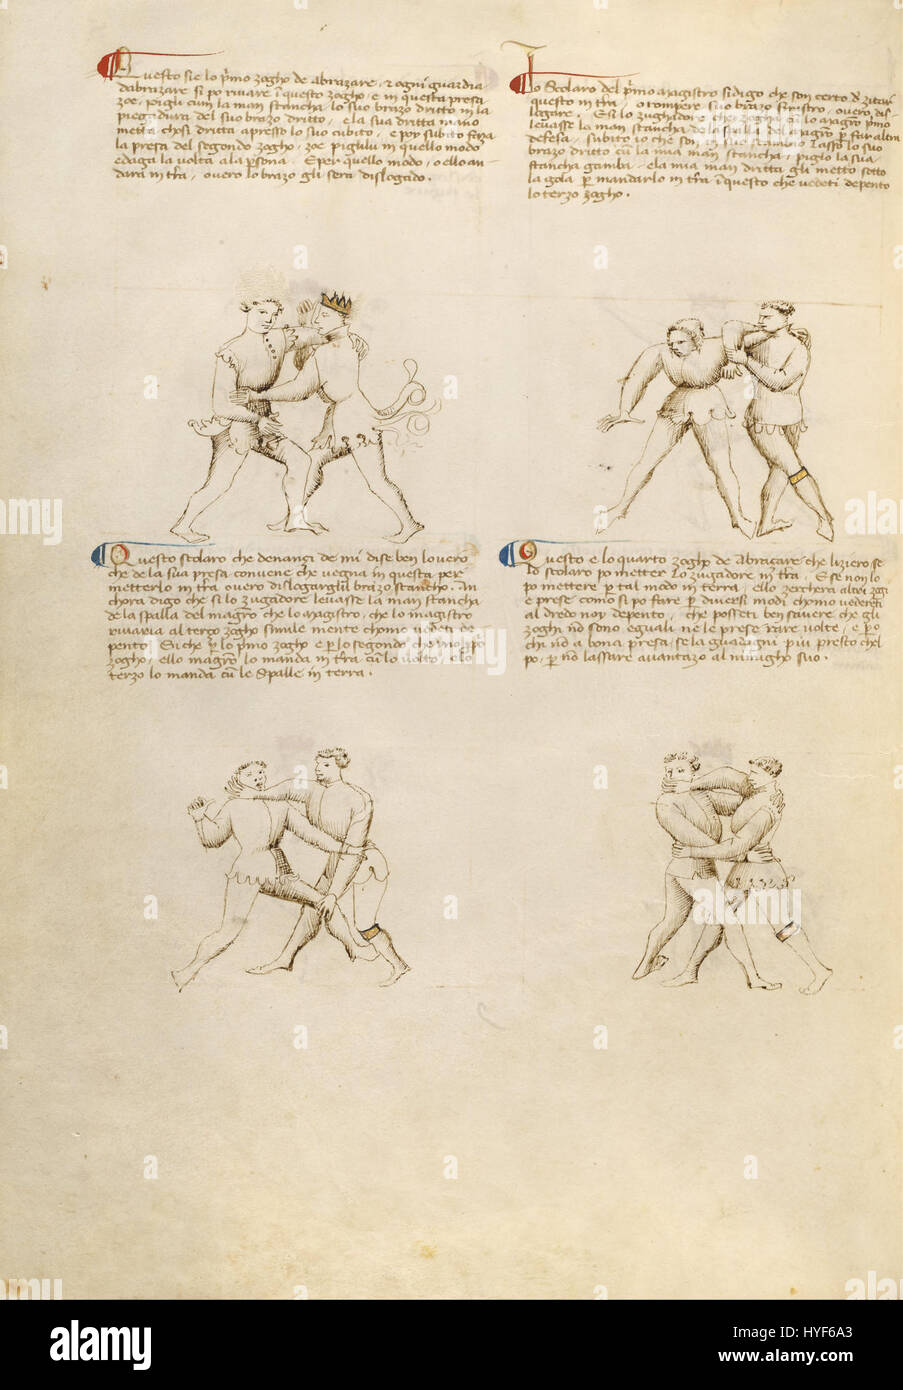 Questo sie lo pͥmo zogho de abrazare, e ogni guardia
dabrazare si po rivare ī questo zogho, e in questa presa
zoe, pigli cum la man stancha lo suo brazo dritto in la
piegadura del suo brazo dritto, e la sua dritta mano
metta chosi dritta apresso lo suo cubito, e poy subito faza
la presa del segondo zogho, zoe piglilu in quello modo
e daga la volta a la pͥsona. E per quello modo, o ello an
dara in tr̃a, overo lo brazo gli sera dislogado.
Lo Scolaro del pͥmo magistro si digo che son certo de zitar
questo in tr̃a, o rompere suo brazo sinistro, overo dis
logare. E si lo zughadore che zogha cum lo magͥ pͥmo
levasse la man stancha de la spalla del magͥ per far altra
defesa, subito io che son
brazo dritto cū la mia man stancha, e piglio la sua
stancha gamba, e la mia man dritta gli metto sotto
la gola p̱ mandarlo in tr̃a ī questo che vedeti depento
lo terzo zogho.
Questo scolaro che denanzi de mi dise ben lo vero
che de la sua presa convene che vegna in questa per
metterlo in tr̃a overo dislogargli 'l brazo stancho. An
chora digo che si lo zugadore levasse la man stancha
de la spalla del magͥo che lo magistro, che lo magistro
rivaria al terço zogho simile mente chome vedeti de
pento. Si che p̱ lo pͥmo zogho e p̱ lo segondo che uno pͥo
zogho, ello magͥo lo manda in tr̃a cū lo volto, e lo
terzo lo manda cū le spalle in terra.
Questo e lo quarto zogho de Abraçare che liziero se
lo scolaro po metter lo zugadore in tr̃a. E se non lo
po mettere p̱ tal modo in terra, ello zerchera altri zogi
e prese como si po fare p̱ diversi modi, chomo vedereti
al dredo noy depento, che posseti ben savere che gli
zoghi nō sono eguali ne le prese rare volte, e p̱ o
chi nō a bona presa, se la guadagni piu presto chel
po, p̱ nō lassare avantazo al nimigho suo.
alamy
Image ID: HYF6A3
www.alamy.com